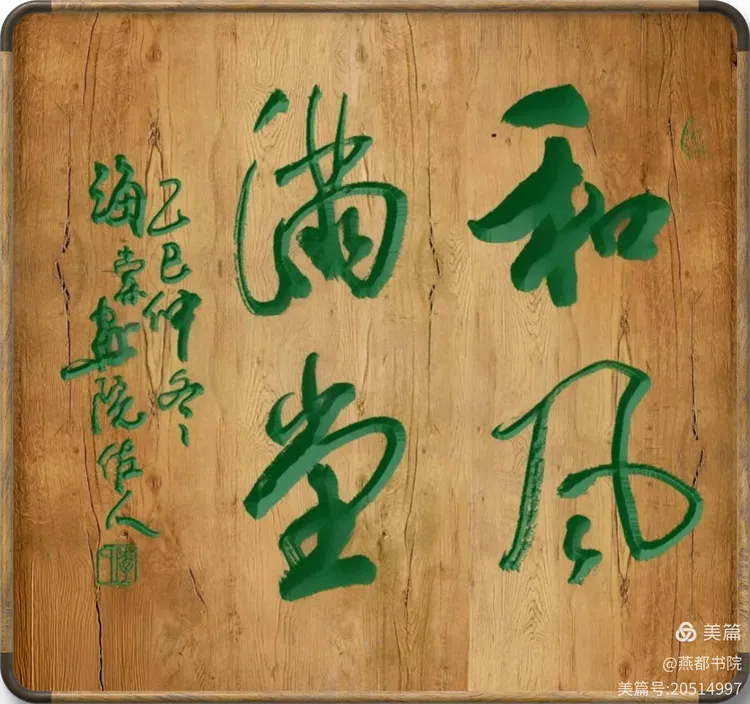 和风
满堂
乙巳仲冬
海棠画院佐人
美篇
@燕都书院
美篇号:20514997